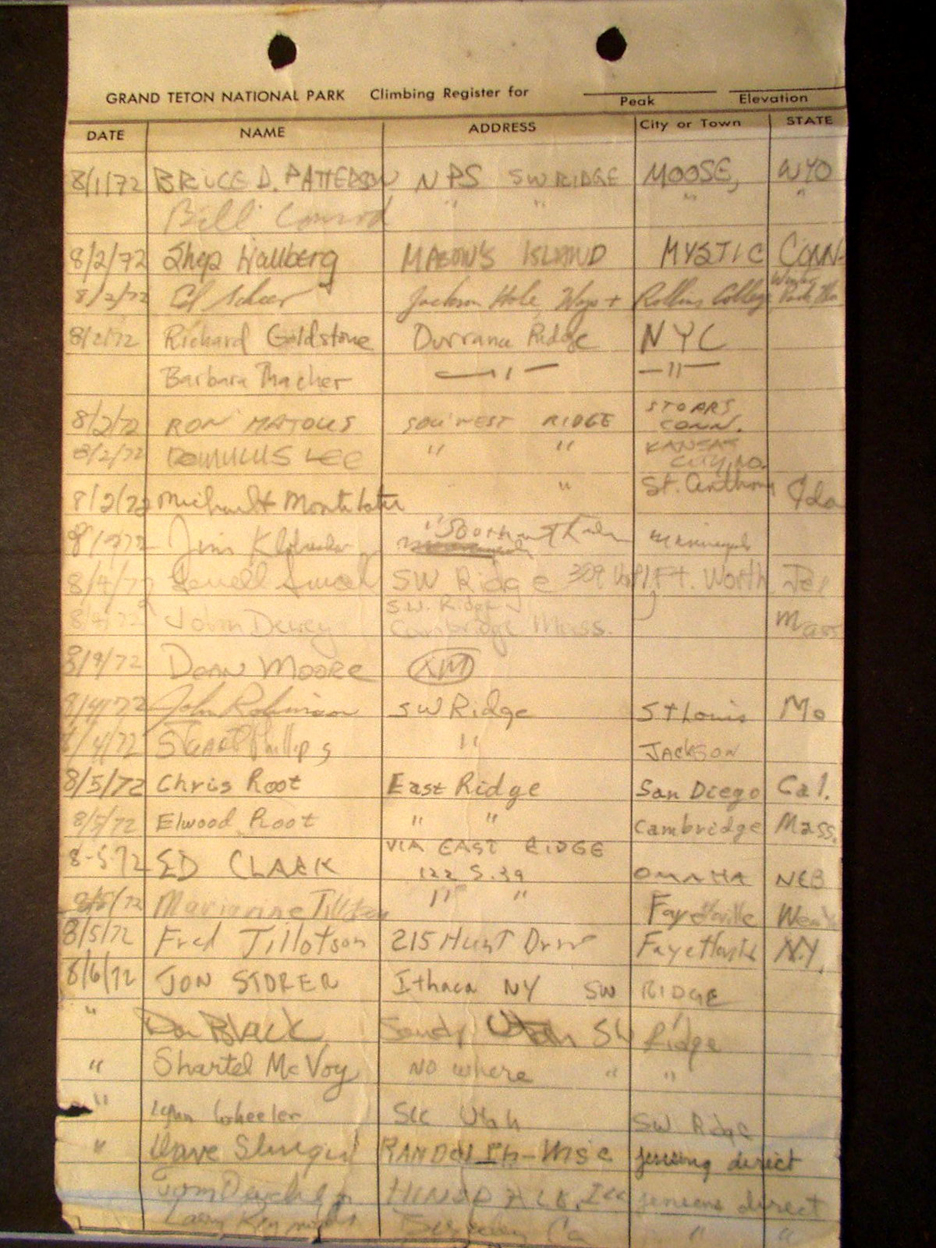 GRAND TETON NATIONAL PARK Climbing Register for
Peak Elevation
DATE NAME ADDRESS City or Town STATE
8/1/72 BRUCE D. PATTERSON NPS SW RIDGE MOOSE, WYO
Bill Conrod " " "
8/2/72 Shep Hallberg MASON'S ISLAND MYSTIC CONN.
8/2/72 Jackson Hole, Wyo + Rollins College Winter Park
8/2/72 Richard Goldstone Durrance Ridge NYC
Barbara Thacher —"— —"—
8/2/72 RON MATOUS SOU'WEST RIDGE STORRS CONN.
8/2/72 ROMULUS LEE " " KANSAS CITY, MO.
8/2/72 " St. Anthony Ida
Jim
SW Ridge 309 Ft. Worth Tex
John Dewey S.W. Ridge Cambridge Mass. Mass
8/4/72 Dean Moore
8/4/72 John Robinson SW Ridge St Louis Mo
8/4/72 Stuart Phillips " JACKSON
8/5/72 Chris Root East Ridge San Diego Cal.
8/5/72 Elwood Root " " Cambridge Mass.
8-5 72 ED CLARK VIA EAST RIDGE 122 S. 39 OMAHA NEB
8/5/72 " " Fayetteville
8/5/72 Fred Tillotson 215 Hunt Drive Fayetteville N.Y.
8/6/72 JON STORER Ithaca NY SW RIDGE
" Don Black Sandy Utah SW Ridge
" Shartel McVoy NO where " "
" Lynn Wheeler SLC Utah SW Ridge
" Dave RANDOLPH-WISC jensing direct
Tom ILL jensens direct
Larry Berkeley Ca " "